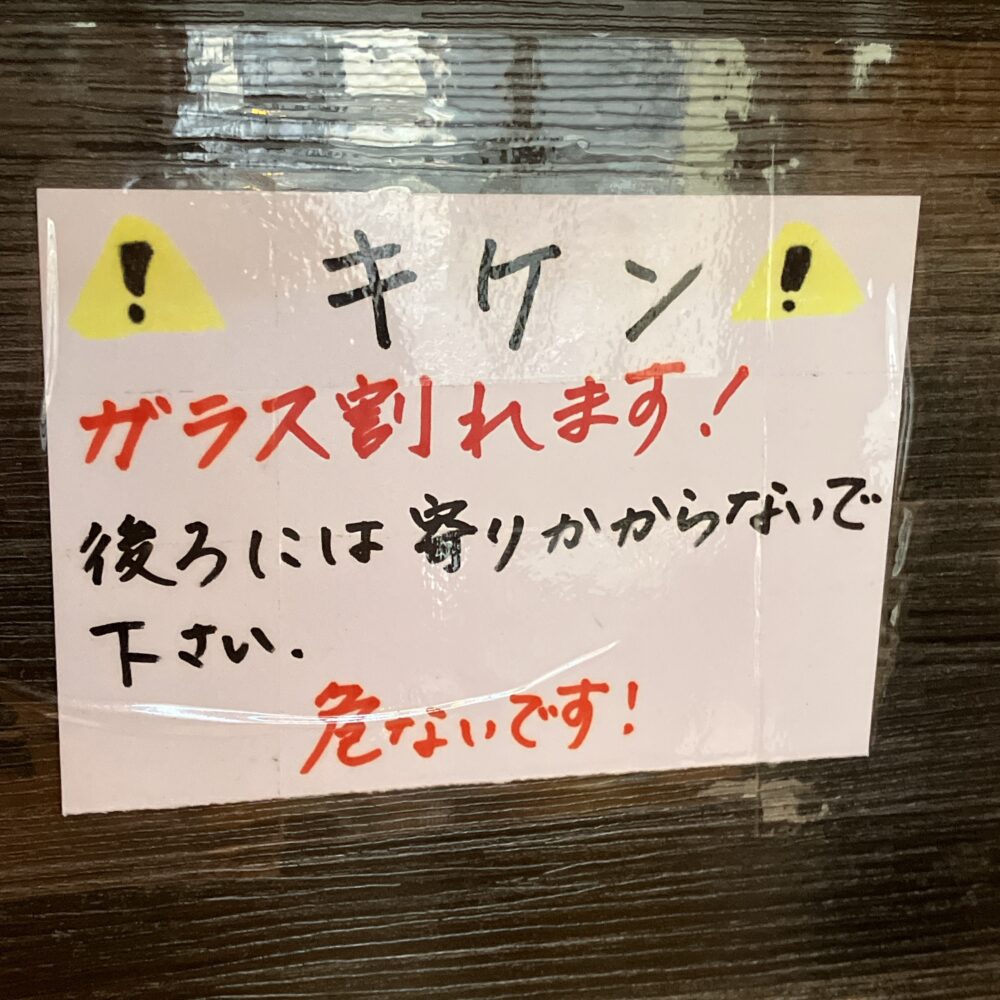 ! キケン !
ガラス割れます!
後ろには寄りかからないで
下さい.
危ないです!